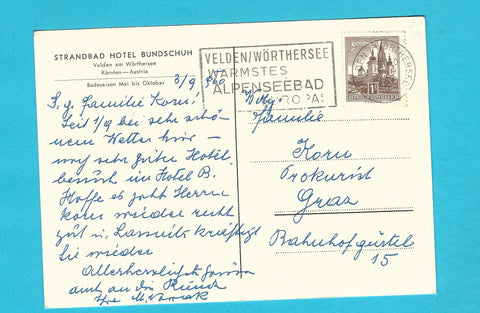 STRANDBAD HOTEL BUNDSCHUH
Velden am Wörthersee
Kärnten—Austria
Badesaison Mai bis Oktober
3/9 960
S. g. Familie Korn!
Seit 1/9 bei sehr schö-
nem Wetter hier –
noch sehr guter Hotel-
besuch im Hotel B.
Hoffe es geht Herrn
Korn wieder recht
gut u.
Sie wieder
Allerherzlichst
auch an die
Ihre M.
VELDEN/WÖRTHERSEE
WÄRMSTES
ALPENSEEBAD
EUROPAS
REPUBLIK ÖSTERREICH
Familie
Korn
Prokurist
Graz
Bahnhofgürtel
15